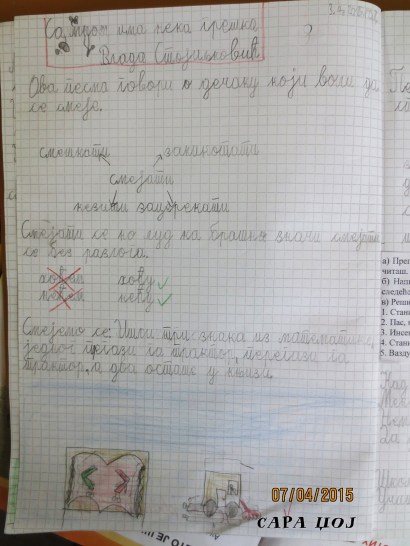 3.4.
Са мном има нека грешка
Влада Стојиљковић
?
Ова песма говори о дечаку који воли да
се смеје.
смешкати закикотати
смејати
кезити зацерекати
Смејати се ко луд на брашно значи смејати
се без разлога.
хоћем хоћу
нећем нећу
Смејемо се: Ишли три знака из математике,
једног прегази га трактор, прегази га
трактор, а два осташе у књизи.
а) Преп
читаш.
б) Напи
следеће
в) Реши
1. Стани
2. Пас,
3. Инсе
4. Стани
5. Вазду
07/04/2015
САРА ЏОЈ